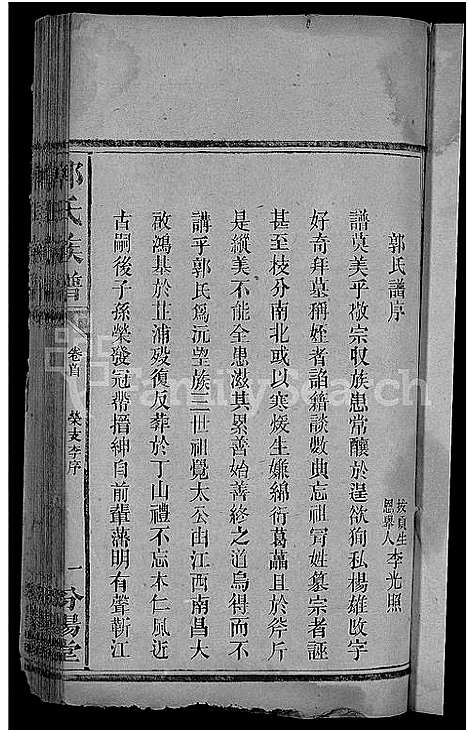 郭氏譜序
拔貢生
恩舉人李光照
譜莫美乎敬宗収族患常釀於逞欲狥私楊雄改字
好奇拜墓稱姪者諂籍談數典忘祖冒姓墓宗者誣
甚至枝分南北或以寒煖生嫌綿衍葛藟且於斧斤
是縱美不能全患滋其累善始善終之道烏得而不
講乎郭氏爲沅望族三世祖覺太公由江西南昌大
啟鴻基於芷浦歿復反葬於丁山禮不忘本仁風近
古嗣後子孫榮發冠帶搢紳自前輩藩明有聲蘄江
郭氏族譜
卷首
榮支李序
一
汾陽堂
FamilySearch